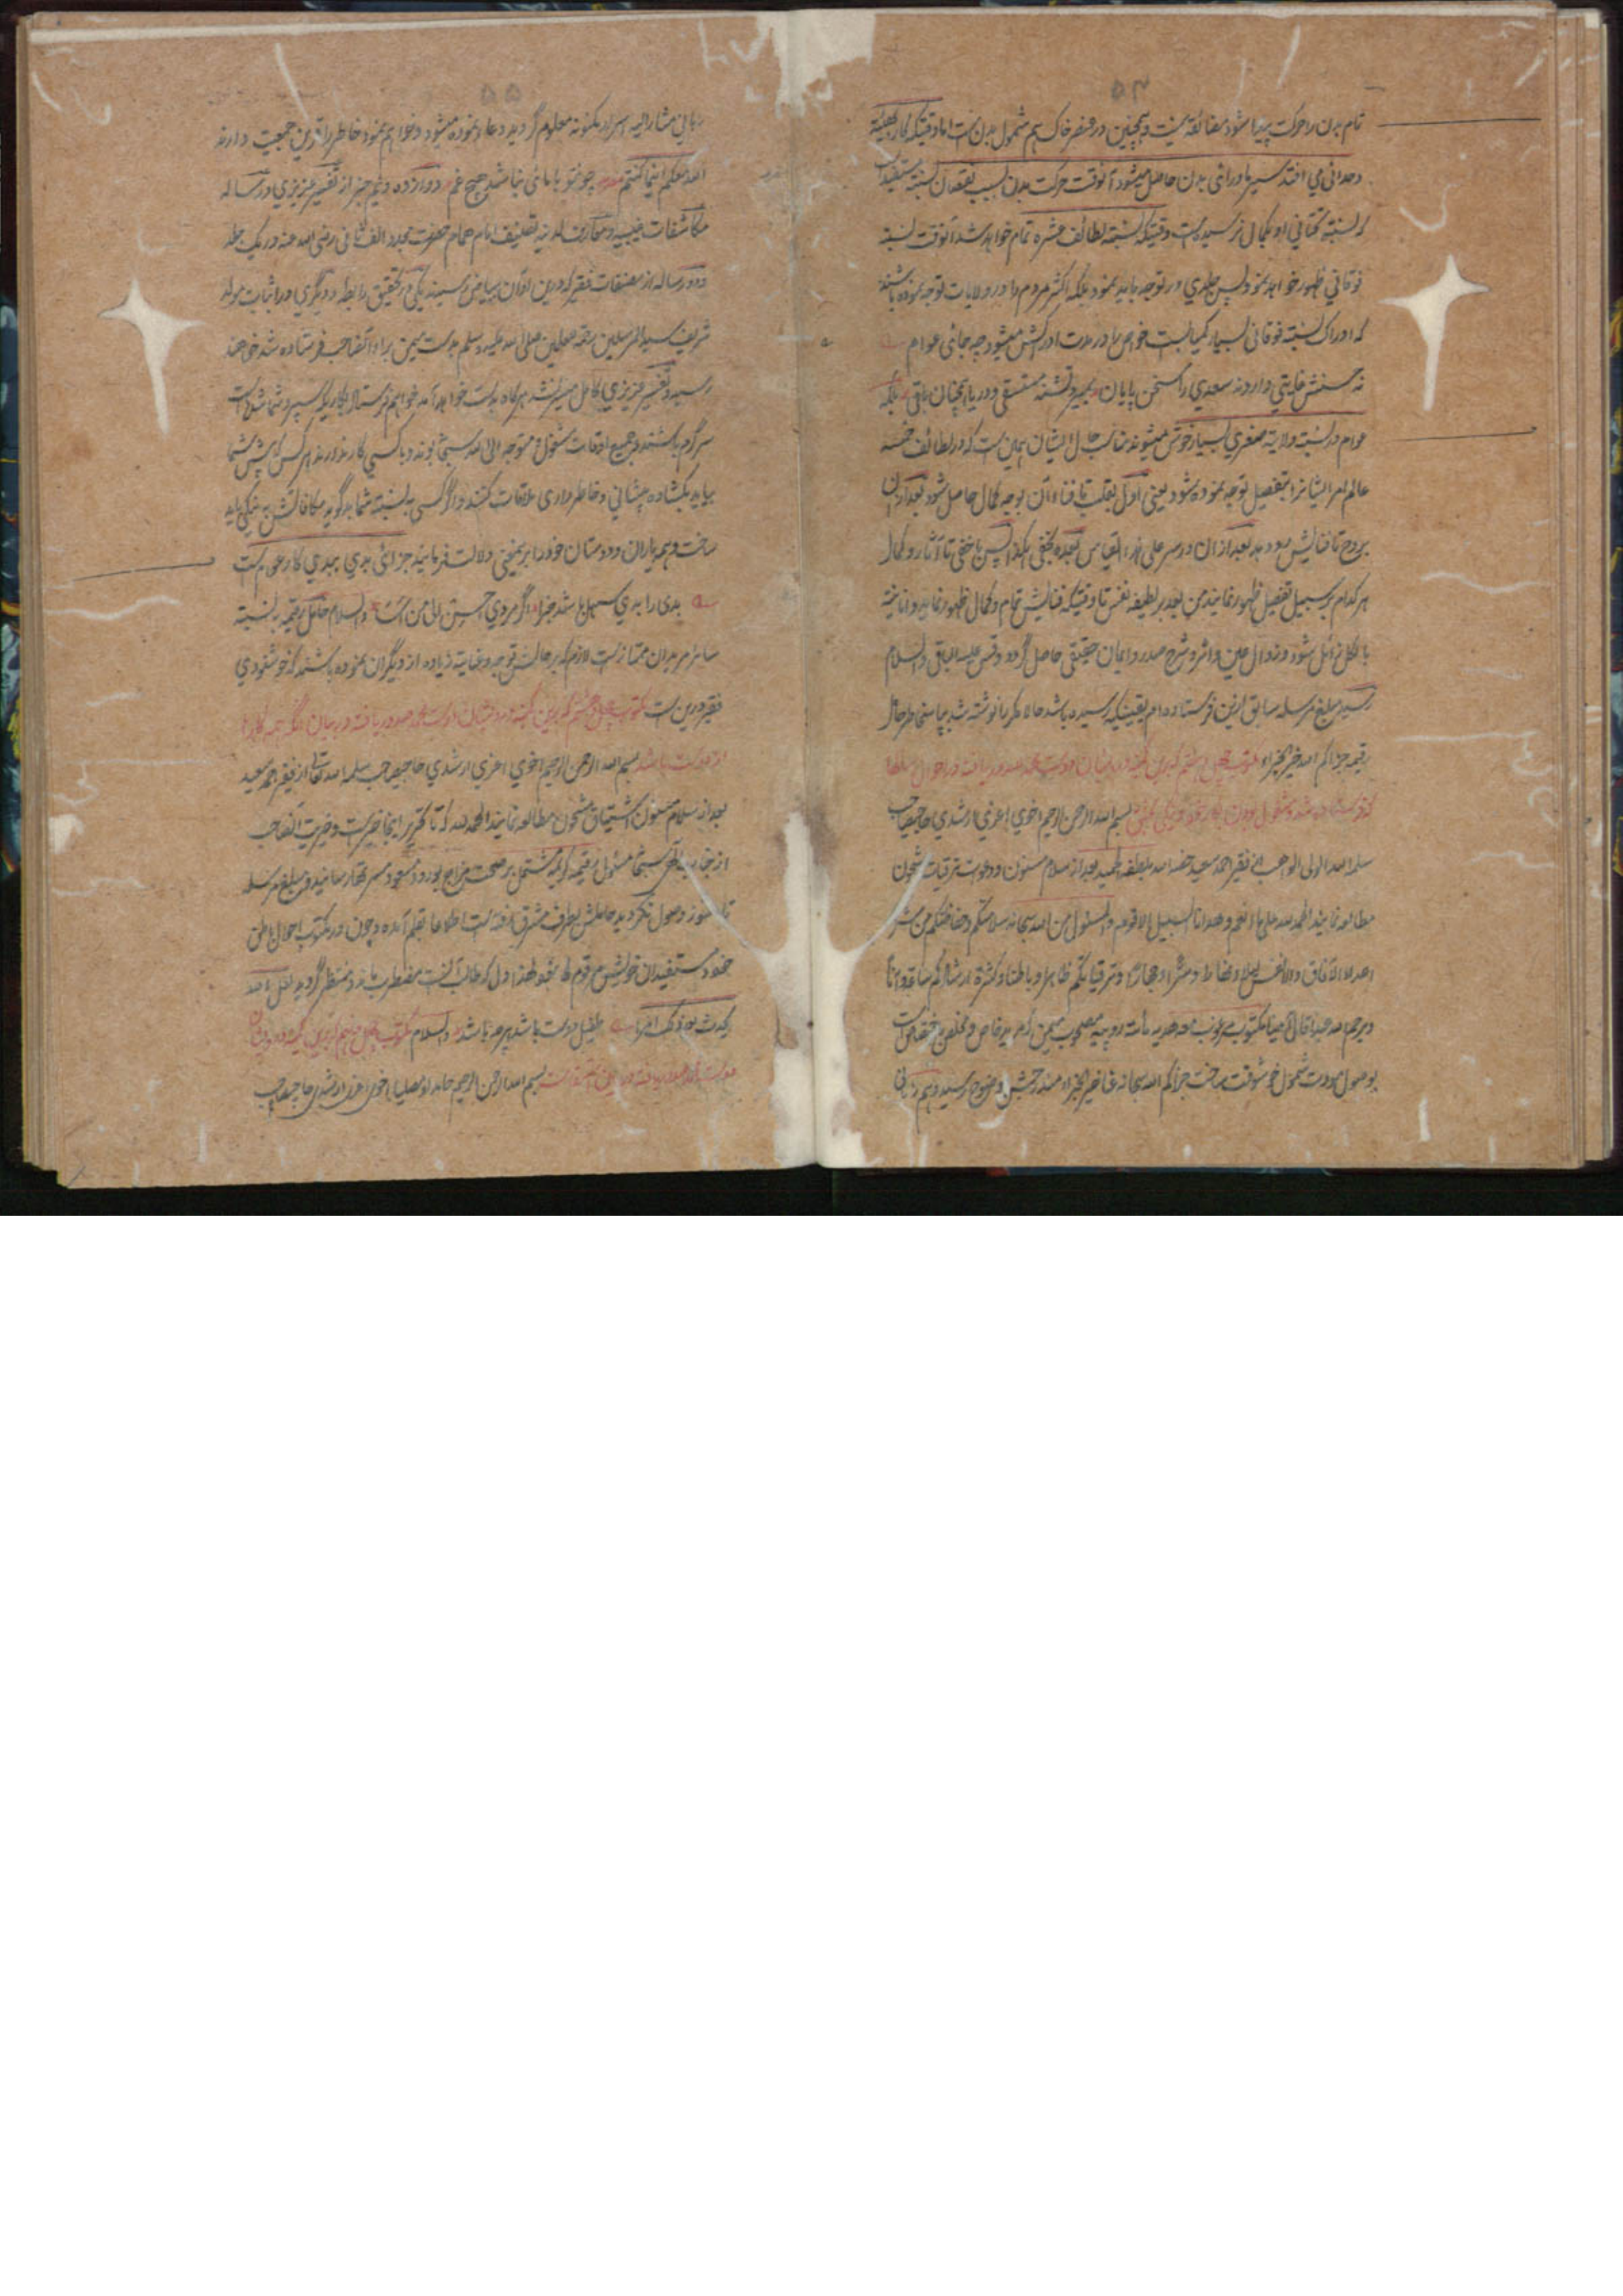 تمام بدن را حرکت پیدا شود مضائقه نیست و همچنین در عنصر خاک هم شمول بدنست اما وقتیکه کار بهیئة
وحدانی می افتد سیر ماورائی بدن حاصل میشود آنوقت حرکت بدن بسبب نقصان نسبت مستفید است
که نسبت تحتانی او بکمال نرسیده است وقتیکه نسبت لطائف عشره تمام خواهد شد آنوقت نسبة
فوقانی ظهور خواهد نمود پس جلدی در توجه باید نمود بلکه اکثر مردم را در ولایات توجه نموده باشند
که ادراک نسبت فوقانی بسیار کمیاب است خواص را در مدت ادراکش میشود چه جائی عوام
نه حسنش غایتی دارد نه سعدی را سخن پایان بمیرد تشنه مستسقی و دریا همچنان باقی بلکه
عوام در نسبت ولایة صغری بسیار خوش میشوند مناسب حال ایشان همین است که در لطائف خمسه
عالم امر ایشانرا بتفصیل توجه نموده شود یعنی اول بقلب تا فناء آن بوجه کمال حاصل شود بعد ازان
بروح تا فنایش بعد ازان در سر علی هذا القیاس بعده بخفی پس باخفی تا آثار و کمال
هر کدام بر سبیل تفصیل ظهور نمایند من بعد بر لطیفه نفس تا وقتیکه فنایش تمام و کمال ظهور نماید و انانیة
بالکل زائل شود و زوال عین و اثر و شرح صدر و ایمان حقیقی حاصل گردد وقس علیه الباقی والسلام
رسید مبلغ مرسله سابق ازین فرستاده ام یقینیکه رسیده باشد حالا مکرر نوشته شد بپاس خاطر حامل
رقیمه جزاکم الله خیر الجزاء مکتوب چهل هفتم
بسم الله الرحمن الرحیم اخوی اعزی ارشدی حاجی صاحب
سلمه الله الولی الواهب از فقیر احمد سعید بعد از سلام مسنون و دعوات ترقیات مشحون
مطالعه نمایند الحمد لله علی ما انعم و هدانا السبیل الاقوم والمسئول من الله سبحانه سلامتکم و حفاظتکم من شر
اعداء الآفاق والانفس و ترقیاتکم ظاهرا و باطنا و کثرة ارشادکم
ویرحم الله عبدا قال آمینا مکتوب مرغوب معه هدیه مأته روپیه مصحوب
بوصول مودت شمول خوشوقت ساخت جزاکم الله سبحانه عنا خیر الجزاء وضوح رسید و هم زبانی
زبانی مشار الیه اسرار مکنونه معلوم گردید دعا نموده میشود و خواهم نمود خاطر را قرین جمعیت دارند
الله معکم اینما کنتم چون تو با مائی نباشد هیچ غم دوازده و نیم جزء از تفسیر عزیزی و رساله
مکاشفات غیبیه و معارف لدنیه تصنیف امام همام حضرت مجدد الف ثانی رضی الله عنه در یک جلد
و دو رساله از مصنفات فقیر که درین اوان ببیاض رسیدند یکی در تحقیق رابطه و دیگری در اثبات مولد
شریف سید المرسلین صلی الله علیه وسلم بدست برای آنصاحب فرستاده شد خواهند
رسید و تفسیر عزیزی کامل میسر نشد هرگاه بدست خواهد آمد خواهم فرستاد بکاریکه سپرد شما شده است
سرگرم باشند و جمیع اوقات مشغول و متوجه الی الله سبحانه بوند و با کسی کار ندارند هر کس که پیش شما
بیاید بکشاده پیشانی و خاطرداری ملاقات کنند و اگر کسی به نسبت شما بد گوید مکافاتش به نیکی باید
ساخت و همه یاران و دوستان خود را بر همین معنی دلالت فرمایند جزای بدی ببدی کار عوام است
بدی را بدی سهل باشد جزا اگر مردی احسن الی من اساء والسلام حامل رقیمه به نسبت
سائر مریدان ممتاز است لازم که بر حالش توجه و عنایة زیاده از دیگران نموده باشند که خوشنودی
فقیر درین است مکتوب چهل و هشتم
از دوست باشد بسم الله الرحمن الرحیم اخوی اعزی ارشدی حاجی صاحب سلمه الله تعالی از فقیر احمد سعید
بعد از سلام مسنون اشتیاق مشحون مطالعه نمایند الحمد لله که تا تحریر اینجا خیریت و خیریت آنصاحب
از جناب الهی سبحانه مسئول رقیمه کریمه مشتمل بر صحت مزاج بورود مسعود مسرتها رسانید و مبلغ مرسله
تا هنوز وصول نگردیده حاملش بطرف مشرق رفته است اطلاعا بقلم آمده و چون در مکتوب احوال باطن
خود و مستفیدان خویش مرقوم نبود لهذا دل که طالب آنست مضطرب ماند و منتظر گردید لعل الله
یحدث بعد ذلک امرا طفیل دوست باشد هرچه باشد والسلام مکتوب چهل و نهم
بسم الله الرحمن الرحیم حامدا و مصلیا اخوی اعزی ارشدی حاجی صاحب